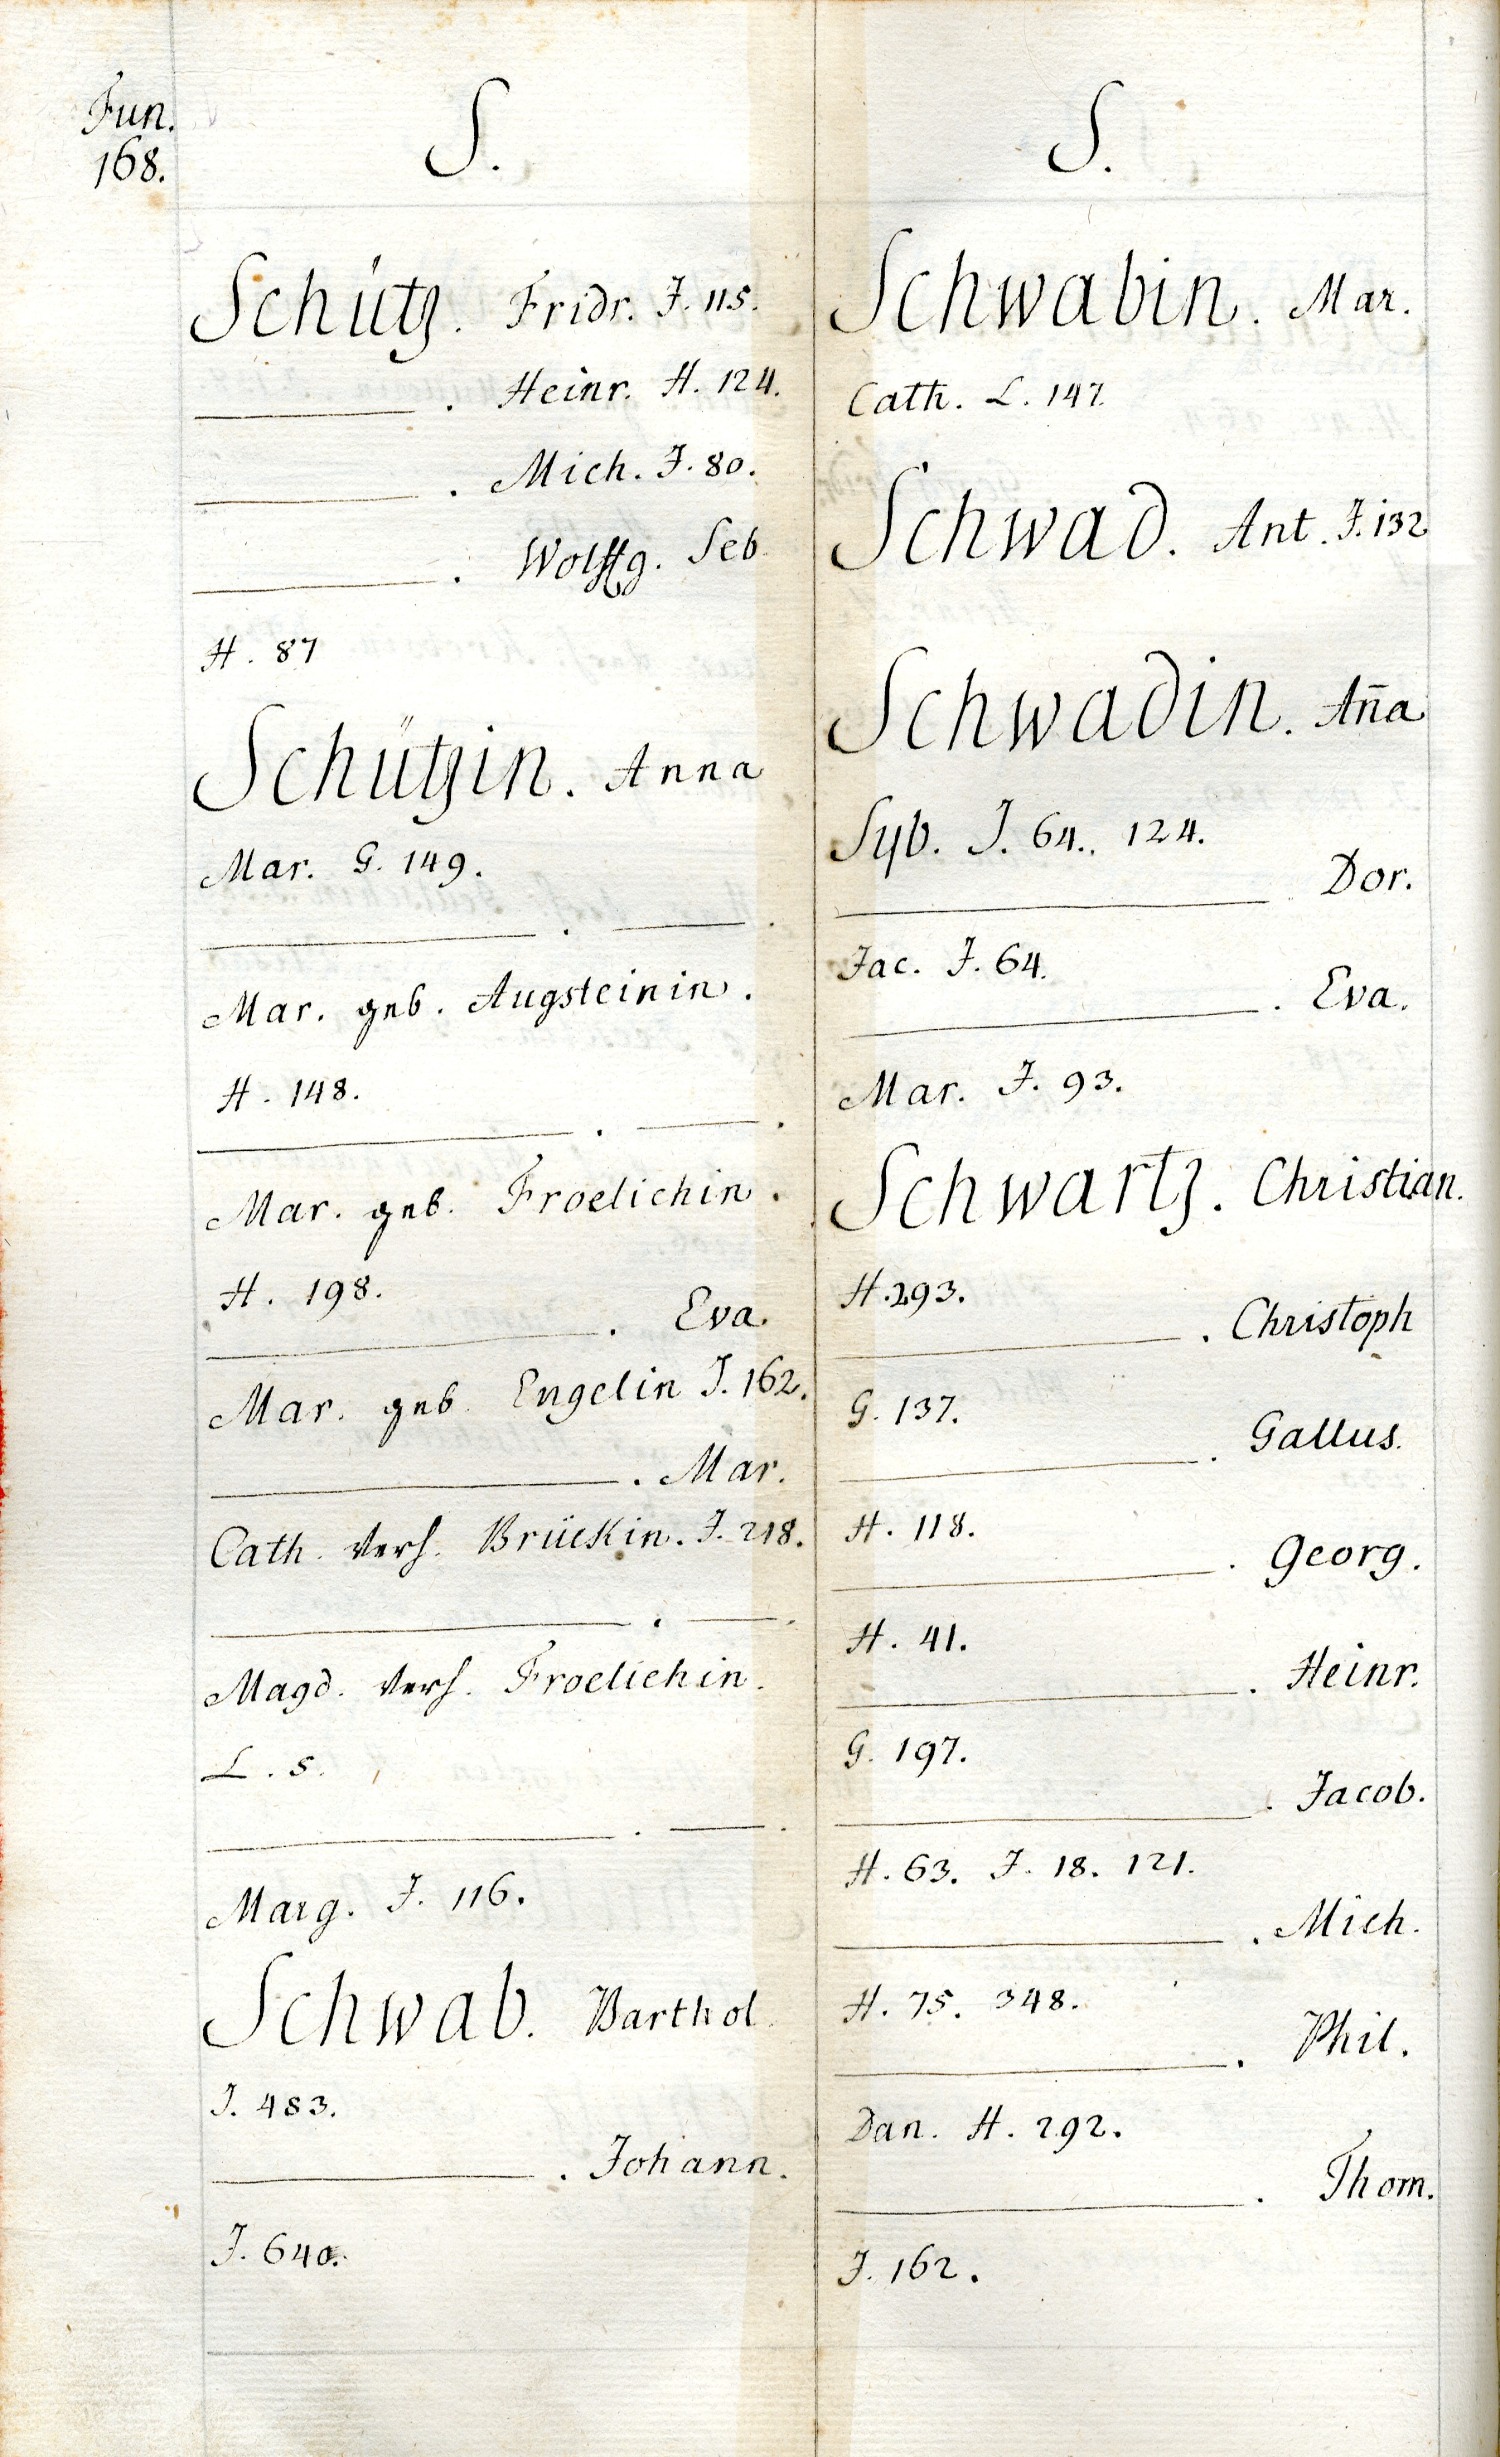 Fun.
168.
S.
Schütz. Fridr. J. 115.
———. Heinr. H. 124.
———. Mich. J. 80.
———. Wolffg. Seb
H. 87
Schützin. Anna
Mar. G. 149.
———. ———.
Mar. geb. Augsteinin.
H. 148.
———. ———.
Mar. geb. Froelichin.
H. 198.
———. Eva.
Mar. geb. Engelin J. 162.
———. Mar.
Cath. verh. Brückin. J. 218.
———. ———.
Magd. verh. Froelichin.
L. 5.
———. ———.
Marg. J. 116.
Schwab. Barthol.
J. 483.
———. Johann.
J. 640.
S.
Schwabin. Mar.
Cath. L. 147.
Schwad. Ant. J. 132
Schwadin. Anña
Syb. J. 64., 124.
———. Dor.
Jac. J. 64.
———. Eva.
Mar. J. 93.
Schwartz. Christian.
H. 293.
———. Christoph
G. 137.
———. Gallus.
H. 118.
———. Georg.
H. 41.
———. Heinr.
G. 197.
———. Jacob.
H. 63. J. 18. 121.
———. Mich.
H. 75. 348.
———. Phil.
Dan. H. 292.
———. Thom.
J. 162.